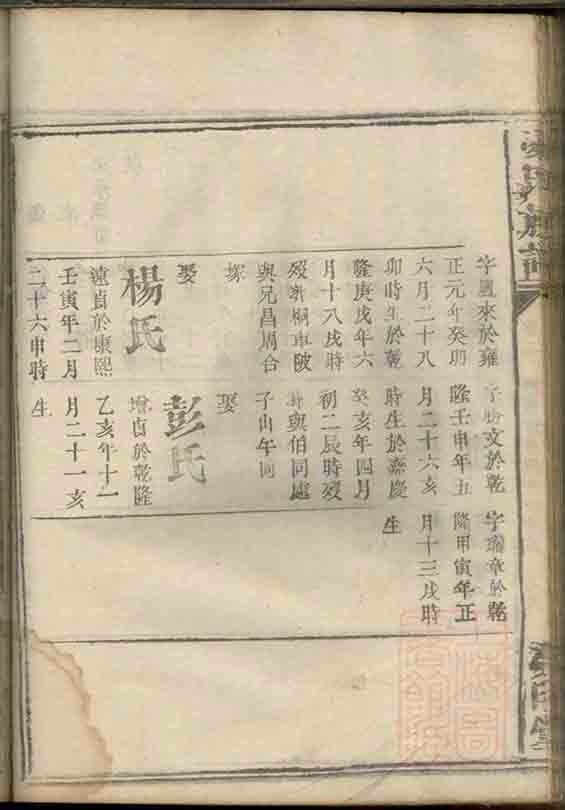 字鳳來於雍
正元年癸卯
六月二十八
卯時生於乾
隆庚戌年六
月十八戌時
歿新桐車陂
與兄昌周合
塚
娶
楊氏
遠貞於康熙
壬寅年二月
二十六申時
字勝文於乾
隆壬申年五
月二十六亥
時生於嘉慶
癸亥年四月
初二辰時歿
與伯同處
子山午向
娶
彭氏
增貞於乾隆
乙亥年十一
月二十一亥
生
字瑞章於乾
隆甲寅年正
月十三戌時
生
氏族譜